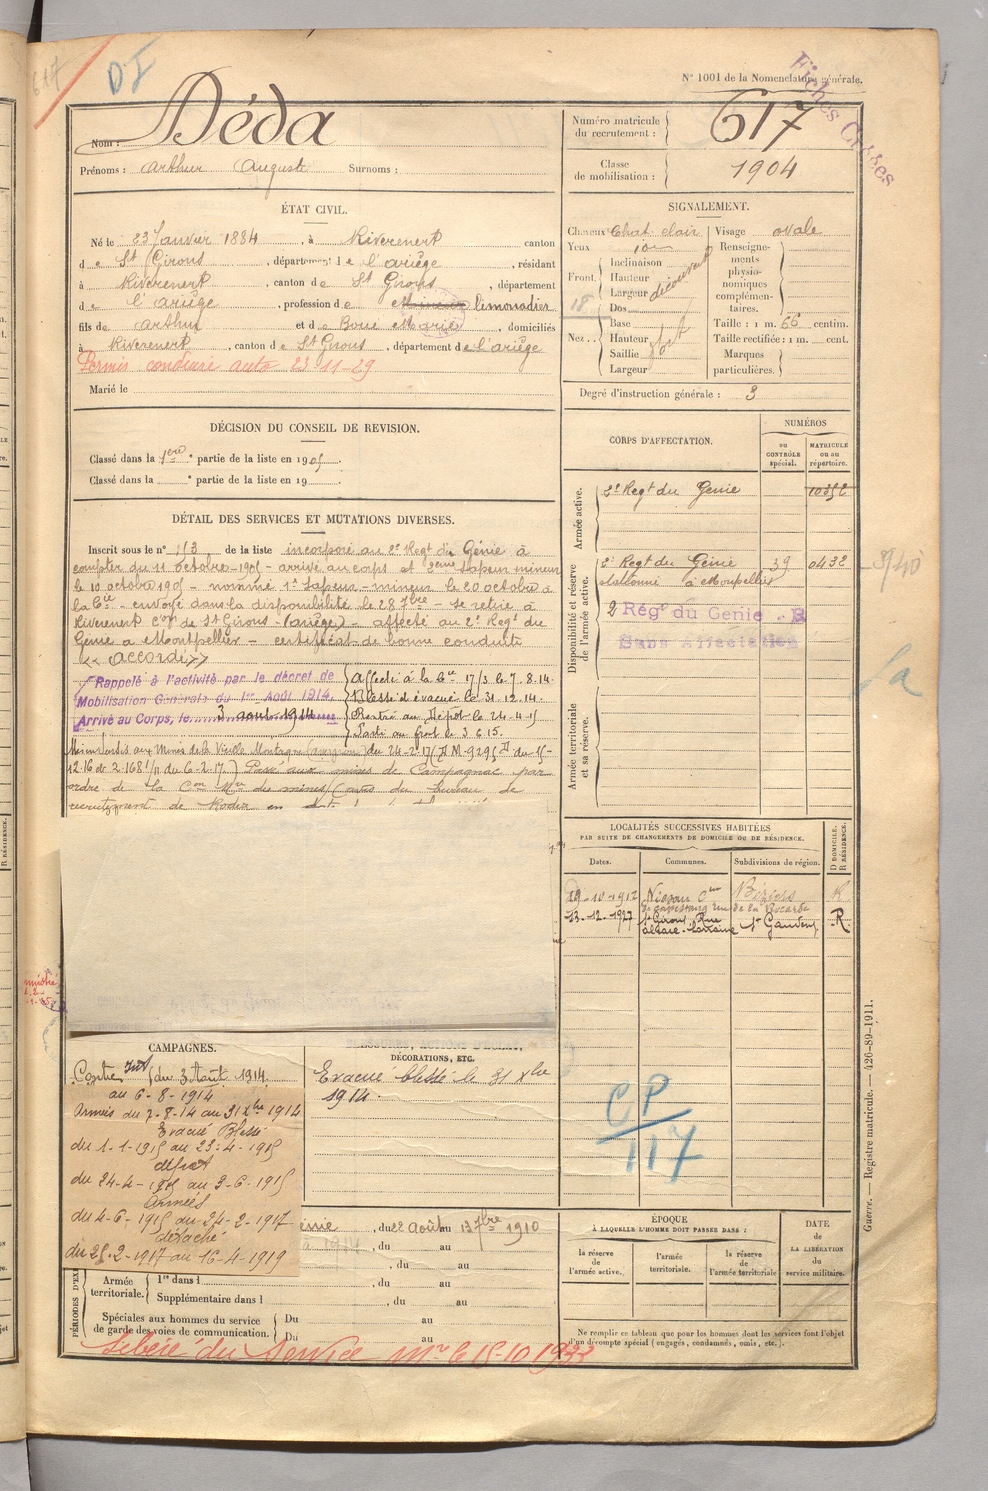 617
DI
N° 1001 de la Nomenclature générale.
Fiches Croses
Nom : Déda
Prénoms : Arthur Auguste Surnoms :
Numéro matricule du recrutement : 617
Classe de mobilisation : 1904
ÉTAT CIVIL.
Né le 23 Janvier 1884, à Rivèrenert canton
de St Girons, département de l'ariège, résidant
à Rivèrenert, canton de St Girons, département
de l'ariège, profession de limonadier
fils de Arthur et de Boué Marie, domiciliés
à Rivèrenert, canton de St Girons, département de l'ariège
Permis conduire auto 23-11-29
Marié le
SIGNALEMENT.
Cheveux Chat. clair Visage ovale
Yeux
Front Inclinaison
Hauteur
Largeur découvert
18
Nez Dos
Base
Hauteur
Saillie fort
Largeur
Renseignements physionomiques complémentaires.
Taille : 1 m. 66 centim.
Taille rectifiée : 1 m. cent.
Marques particulières.
Degré d'instruction générale : 3
DÉCISION DU CONSEIL DE REVISION.
Classé dans la 1ère partie de la liste en 1905.
Classé dans la e partie de la liste en 19 .
DÉTAIL DES SERVICES ET MUTATIONS DIVERSES.
Inscrit sous le n° 113 de la liste incorporé au 2e Regt du Génie à
compter du 11 octobre 1905 - arrivé au corps et 2ème sapeur mineur
le 10 octobre 1905 - nommé 1er sapeur-mineur le 20 octobre à
la 6 Cie - envoyé dans la disponibilité le 28 7bre - se retire à
Rivèrenert Con de St Girons (Ariège) - affecté au 2e Regt du
Génie à Montpellier - certificat de bonne conduite
<< accordé >>
Rappelé à l'activité par le décret de
Mobilisation Générale du 1er Août 1914.
Arrivé au Corps, le 3 août 1914
Affecté à la Cie 17/3 le 7.8.14
Blessé évacué le 31.12.14.
Rentré au Dépôt le 24-4-15
Parti au front le 3 6 15.
Mis en sursis aux Mines de la Vieille Montagne (aveyron) du 24-2-17
12-16 du 6-2-17) Passé aux mines de Campagnac par
ordre de la Con des mines bureau de
recrutement de Rodez en
CORPS D'AFFECTATION.
NUMÉROS
AU CONTRÔLE spécial.
MATRICULE ou au répertoire.
Armée active.
2e Regt du Génie 10352
Disponibilité et réserve de l'armée active.
2e Regt du Génie 39 0432
stationné à Montpellier
2 Rég' du Génie
Sans Affectation
Armée territoriale et sa réserve.
LOCALITÉS SUCCESSIVES HABITÉES
PAR SUITE DE CHANGEMENTS DE DOMICILE OU DE RÉSIDENCE.
Dates. Communes. Subdivisions de région. D DOMICILE. R RÉSIDENCE.
19-10-1912 Nissan Con Béziers R
de Capestang
13-12-1927 St Girons Rue St Gaudens R
alsace-Lorraine
CAMPAGNES.
Contre du 3 Août 1914
au 6-8-1914
Armées du 7-8-14 au 31 Xbre 1914
Evacué Blessé
du 1-1-1915 au 23-4-1915
dépôt
du 24-4-1915 au 3-6-1915
Armées
du 4-6-1915 au 24-2-1917
détaché
du 25-2-1917 au 16-4-1919
DÉCORATIONS, ETC.
Evacué blessé le 31 Xbre
1914.
CP
117
, du 22 Août au 13 7bre 1910
, du au
, du au
Armée territoriale. 1re dans l , du au
Supplémentaire dans l , du au
Spéciales aux hommes du service de garde des voies de communication. Du au
Du au
Libéré du Service
ÉPOQUE
À LAQUELLE L'HOMME DOIT PASSER DANS :
la réserve de l'armée active.
l'armée territoriale.
la réserve de l'armée territoriale
DATE de LA LIBÉRATION du service militaire.
Ne remplir ce tableau que pour les hommes dont les services font l'objet
d'un décompte spécial (engagés, condamnés, omis, etc.).
Guerre. — Registre matricule. — 426-89-1911.